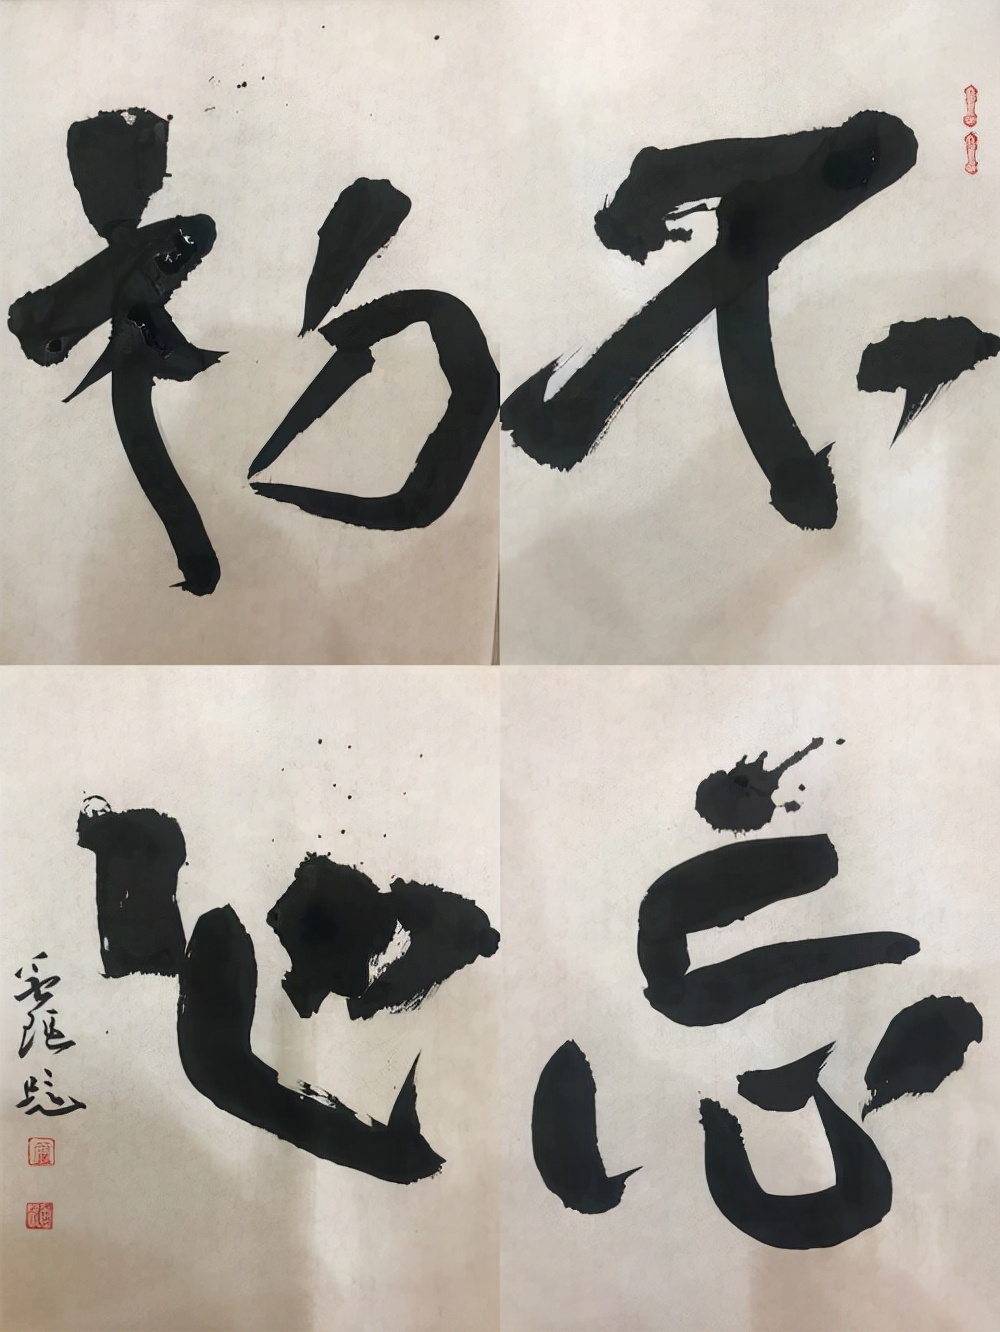 不
忘
初
心